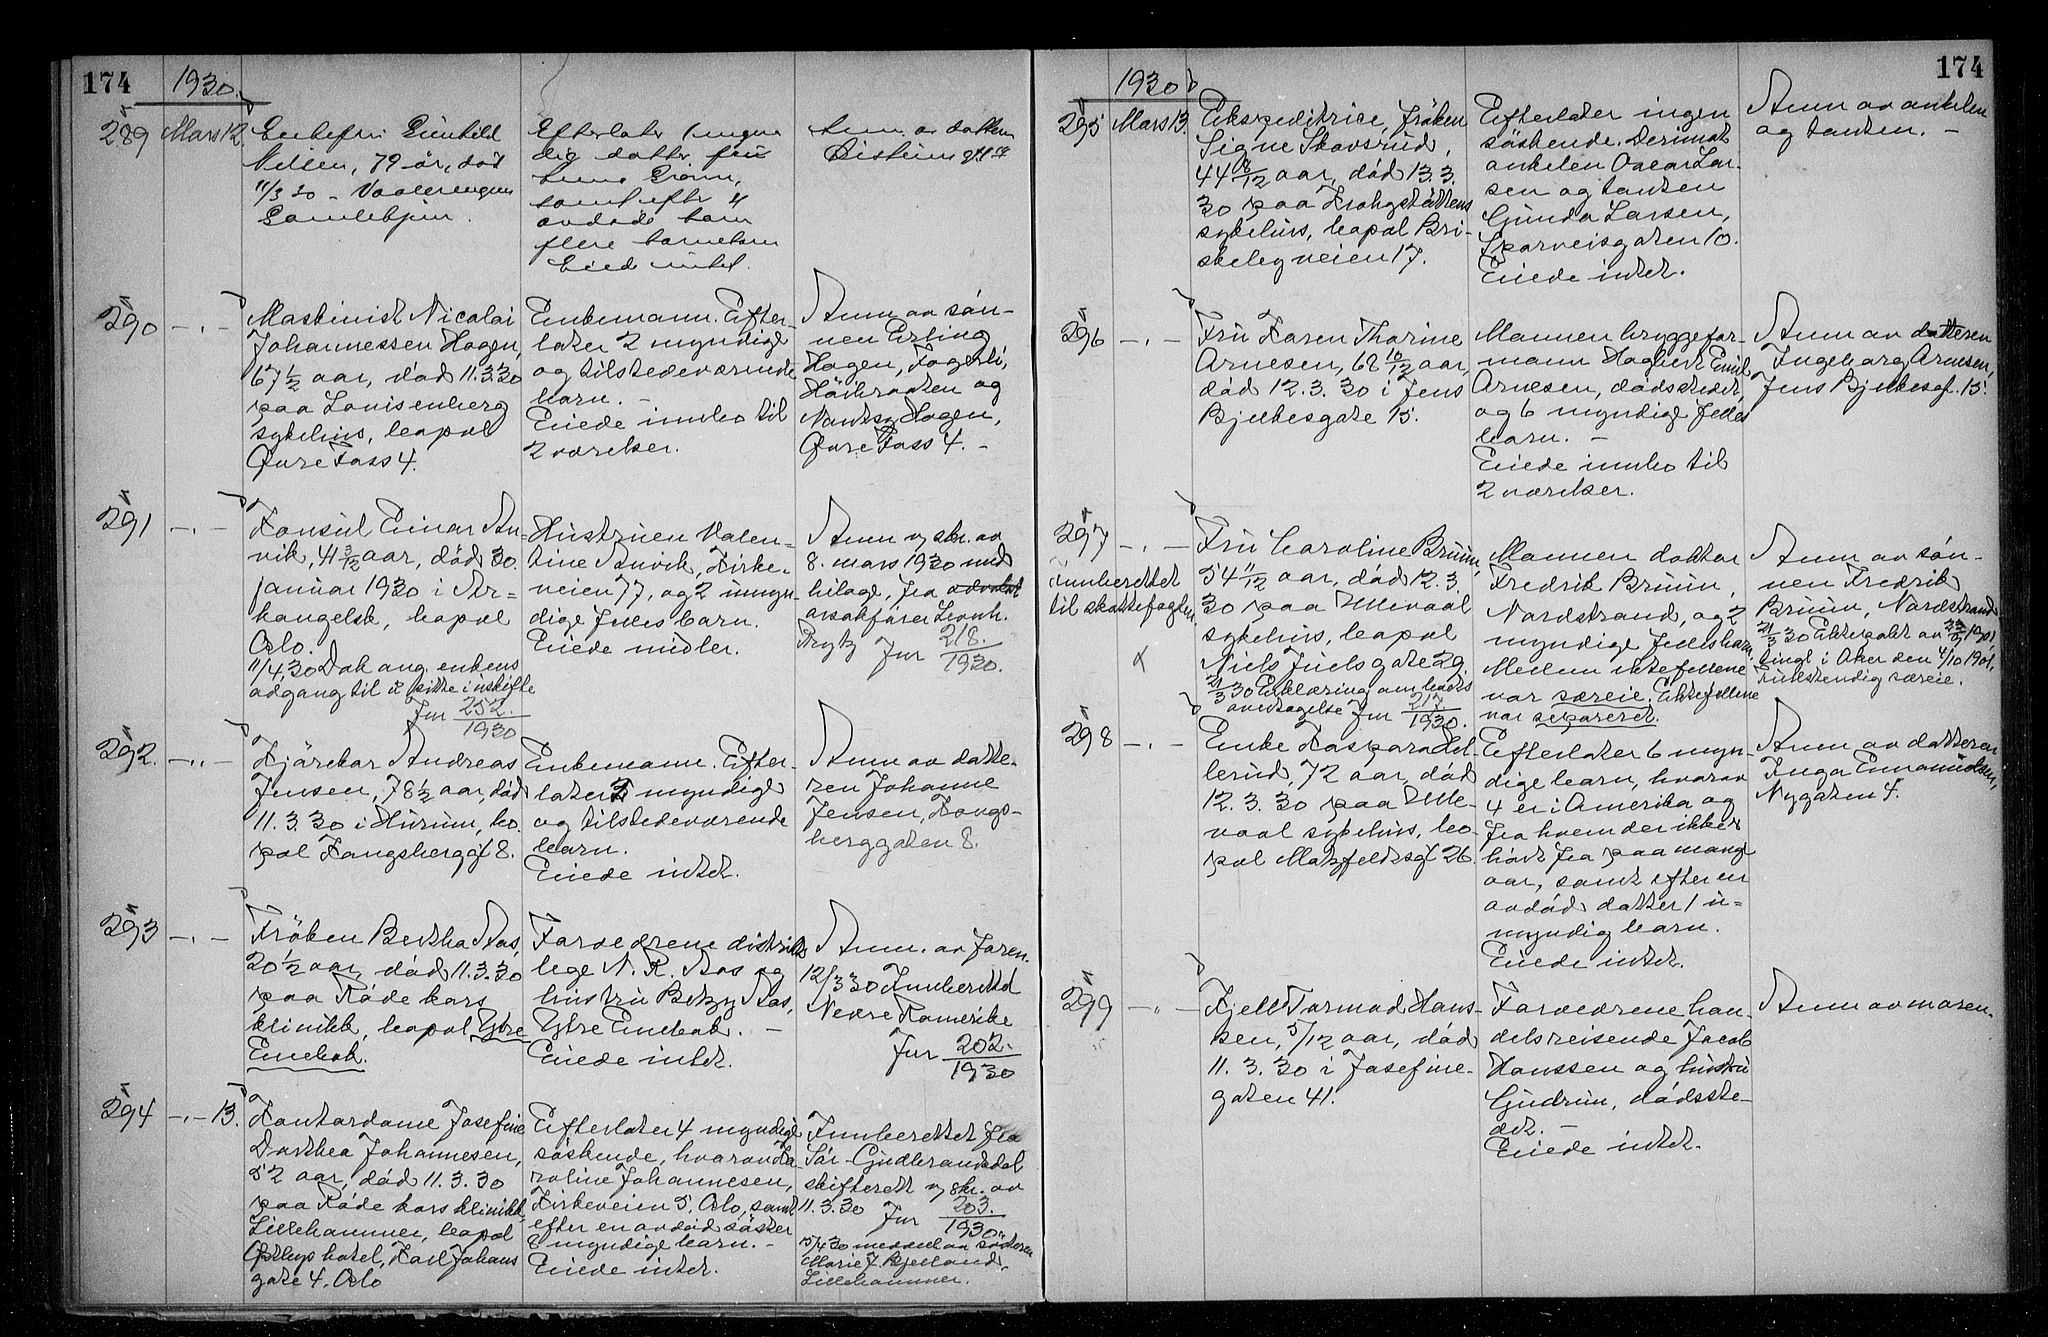 174
1930.
289 Mars 12.
Enkefru Gunhild
Nilsen, 79 år, død
11/3 30 - Vaalerengens
Gamlehjem.
Efterlater 1 myndig
dig datter, fru
samt efter 4
avdøde barn
flere barnebarn
Eied intet.
Anm. av datteren
290 -.-
Maskinist Nicolai
Johannessen Hagen,
67 1/2 aar, død 11.3.30
paa Lovisenberg
sykehus, bopæl
Øvre Foss 4.
Enkemann. Efter-
later 2 myndige
og tilstedeværende
barn. -
Eiede innbo til
2 værelser.
Anm av søn-
nen Erling
Hagen, Fagerli,
Høibraaten og
Hagen,
Øvre Foss 4. -
291 -.-
Konsul Einar An-
vik, 41 3/12 aar, død 30.
januar 1930 i Ar-
kangelsk, bopæl
Oslo.
11/4 30 Dok ang. enkens
adgang til å sitte i uskifte
Jnr 252/1930
Hustruen Valen-
tine Anvik, Kirke-
veien 77, og 2 umyn-
dige felles barn.
Eiede midler.
Anm v skr. av
8. mars 1930 med
bilage, fra advokat
orsakfører Leonh.
Dryts Jnr 218./1930.
292. -.-
Kjørekar Andreas
Jensen, 78 1/2 aar, død
11. 3. 30 i Hurum, bo-
pæl Kongsberggt 8.
Enkemann. Efter-
later 5 myndige
og tilstedeværende
barn.
Eiede intet.
Anm av datte-
ren Johanne
Jensen, Kongs-
berggaten 8.
293 -.-
Frøken Bertha Aas,
20 1/2 aar, død 11.3.30
paa Røde kors
klinikk, bopæl Ytre
Enebak.
Forældrene distrikts
lege N. R. Aas og
hustru Betzy Aas,
Ytre Enebak. -
Eiede intet.
Anm. av faren.
12/3 30 Innberettet
Nedre Romerike
Jnr 202./1930
294 -.- 13.
Kontordame Josefine
Dorthea Johannesen,
52 aar, død 11. 3. 30
paa Røde kors klinikk
Lillehammer, bopæl
hotel, Karl Johans
gate 4, Oslo
Efterlater 4 myndige
søskende, hvorav Ka
roline Johannesen,
Kirkeveien 5, Oslo, samt
efter en avdød søster
2 myndige barn. -
Eiede intet.
Innberettet fra
Sør-Gudbrandsdal
skifterett v skr. av
11.3.30 Jnr 203./1930.
15/4 30 meddel av søsteren
Marie J. Bjelland,
Lillehammer.
174
1930
295 Mars 13.
Ekspeditrice, frøken
Signe Skovsrud,
44 /12 aar, død 13. 3.
30 paa Krohgstøttens
sykehus, bopæl Bri-
skebyveien 17.
Efterlater ingen
søskende. Derimot
onkelen Oscar Lar-
sen og tanten
Gunda Larsen,
Sporveisgaten 10.
Eiede intet.
Anm av onkelen
og tanten. -
296 -.-
Fru Karen Thorine
Arnesen, 68 10/12 aar,
død 12. 3. 30 i Jens
Bjelkesgate 15.
Mannen bryggefor-
mann Hagbert Emil
Arnesen, dødsstedet,
og 6 myndige felles
barn. -
Eiede innbo til
2 værelser.
Anm av datteren
Ingeborg Arnesen,
Jens Bjelkesgt. 15.
297 -.-
Innberettet
til skattefogden.
Fru Caroline Bruun,
54 11/12 aar, død 12. 3.
30 paa Ullevaal
sykehus, bopæl
Niels Juelsgate 29.
21/3 30 Erklæring om boets
overtagelse Jnr 217/1930.
Mannen doktor
Fredrik Bruun,
Nordstrand, og 2
myndige fellesbarn.
Mellem ektefellene
var særeie. Ektefellene
var separeret.
Anm av søn-
nen Fredrik
Bruun, Nordstrand
21/3 30 Ektepakt av 1901,
tingl i Aker den 4/10 1901,
fullstendig særeie.
298 -.-
Enke Kaspara Lil-
lerud, 72 aar, død
12. 3. 30 paa Ulle-
vaal sykehus, bo-
pæl Motzfeldtsgt 26.
Efterlater 6 myn-
dige barn, hvorav
4 er i Amerika og
fra hvem der ikke er
hørt fra paa mange
aar, samt efter en
avdød datter 1 u-
myndig barn.
Eiede intet.
Anm av datteren
Inga Emanuelsen,
Nygaten 4.
299 -.-
Kjell Tormod Hans-
sen, 5/12 aar, død
11. 3. 30 i Josefine-
gaten 41.
Forældrene han-
delsreisende Jacob
Hanssen og hustru
Gudrun, dødsste-
det. -
Eiede intet.
Anm av moren.